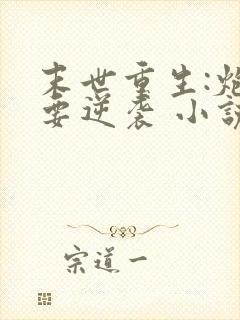 末世重生:炮
要逆袭 小说
宗道一